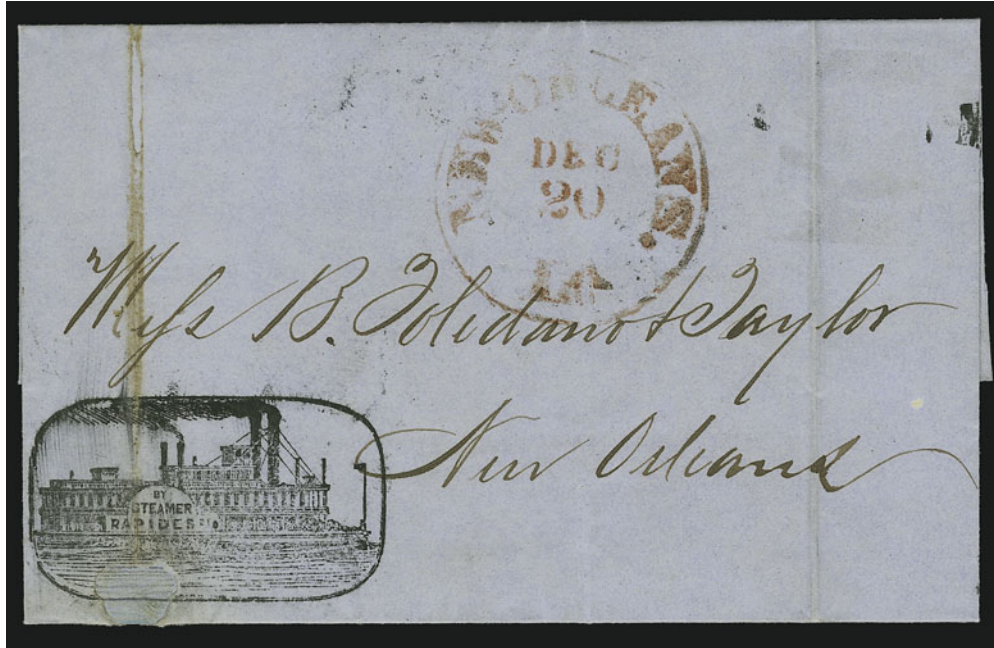 NEW ORLEANS.
DEC
20
LA
Mess B. Toledano & Taylor
New Orleans
BY
STEAMER
RAPIDES